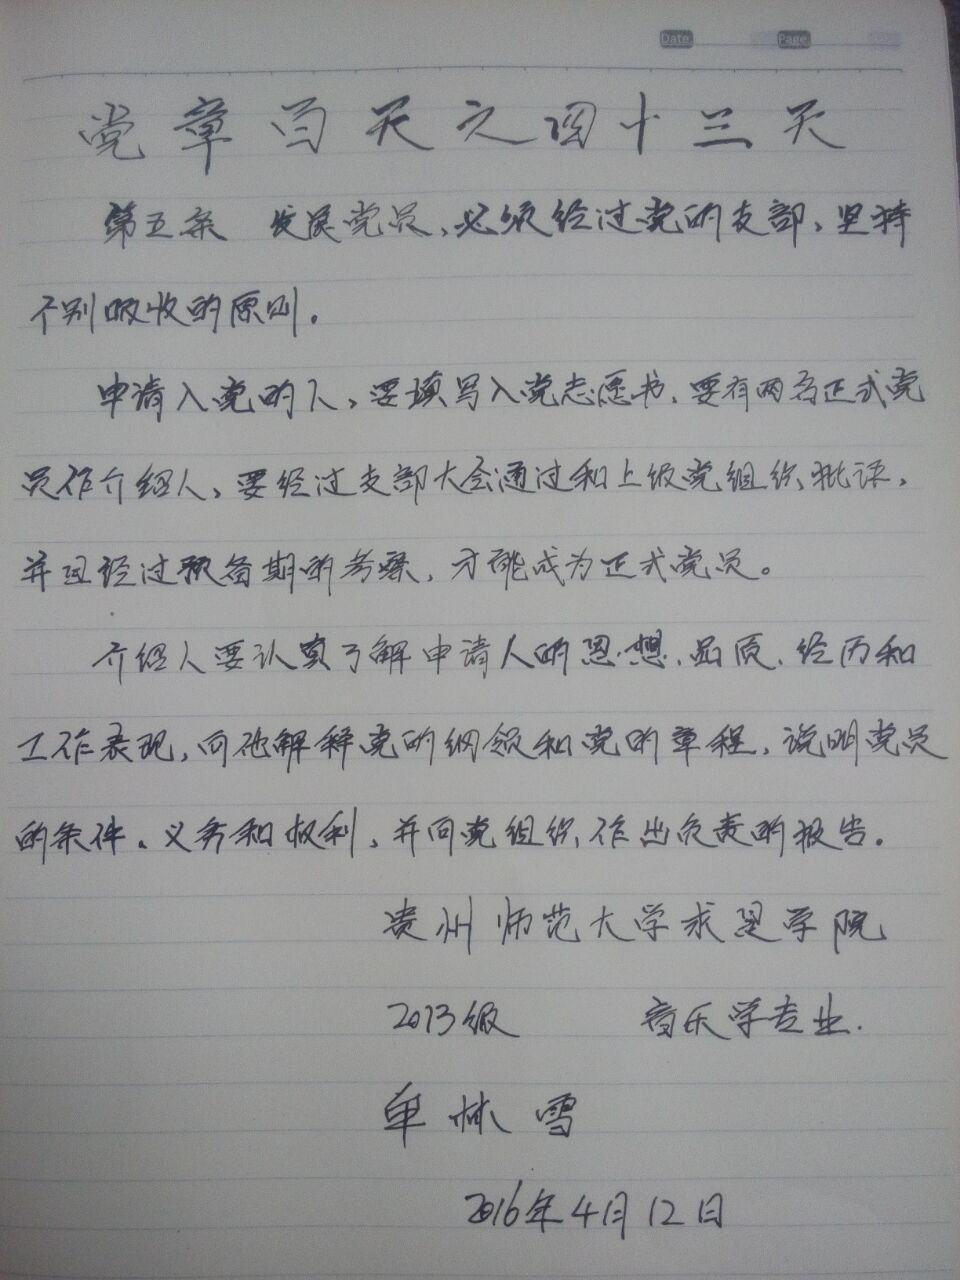 Date Page
党章百天之四十三天
第五条 发展党员,必须经过党的支部,坚持
个别吸收的原则。
申请入党的人,要填写入党志愿书,要有两名正式党
员作介绍人,要经过支部大会通过和上级党组织批评,
并且经过预备期的考察,才能成为正式党员。
介绍人要认真了解申请人的思想、品质、经历和
工作表现,向他解释党的纲领和党的章程,说明党员
的条件、义务和权利,并向党组织作出负责的报告。
贵州师范大学求是学院
2013级 音乐学专业.
单林雪
2016年4月12日